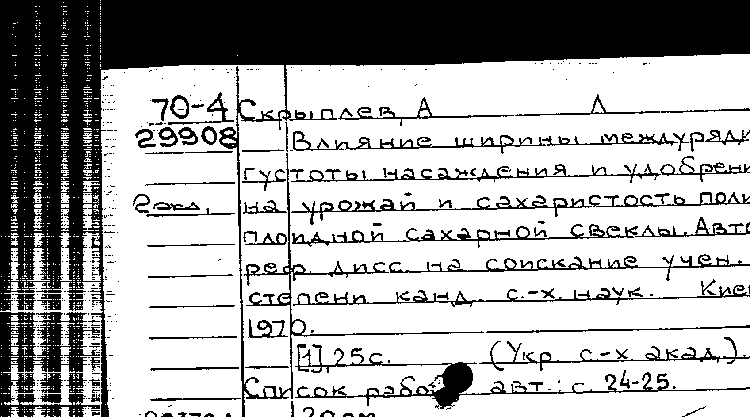 70-4 Скрыплев, А Л
29908 Влияние ширины междуряди
густоты насаждения и удобрени
2экз. на урожай и сахаристость поли
плоидной сахарной свеклы. Авто
реф дисс. на соискание учен.
степени канд. с.-х. наук. Кие
1970.
[1], 25с. (Укр с-х акад.).
Список работ авт.: с. 24-25.